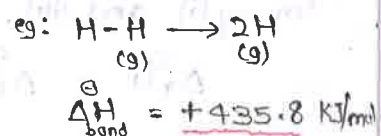 eg: H-H ⟶ 2H
(g) (g)
ΔH⊖ bond = +435.8 KJ/mol